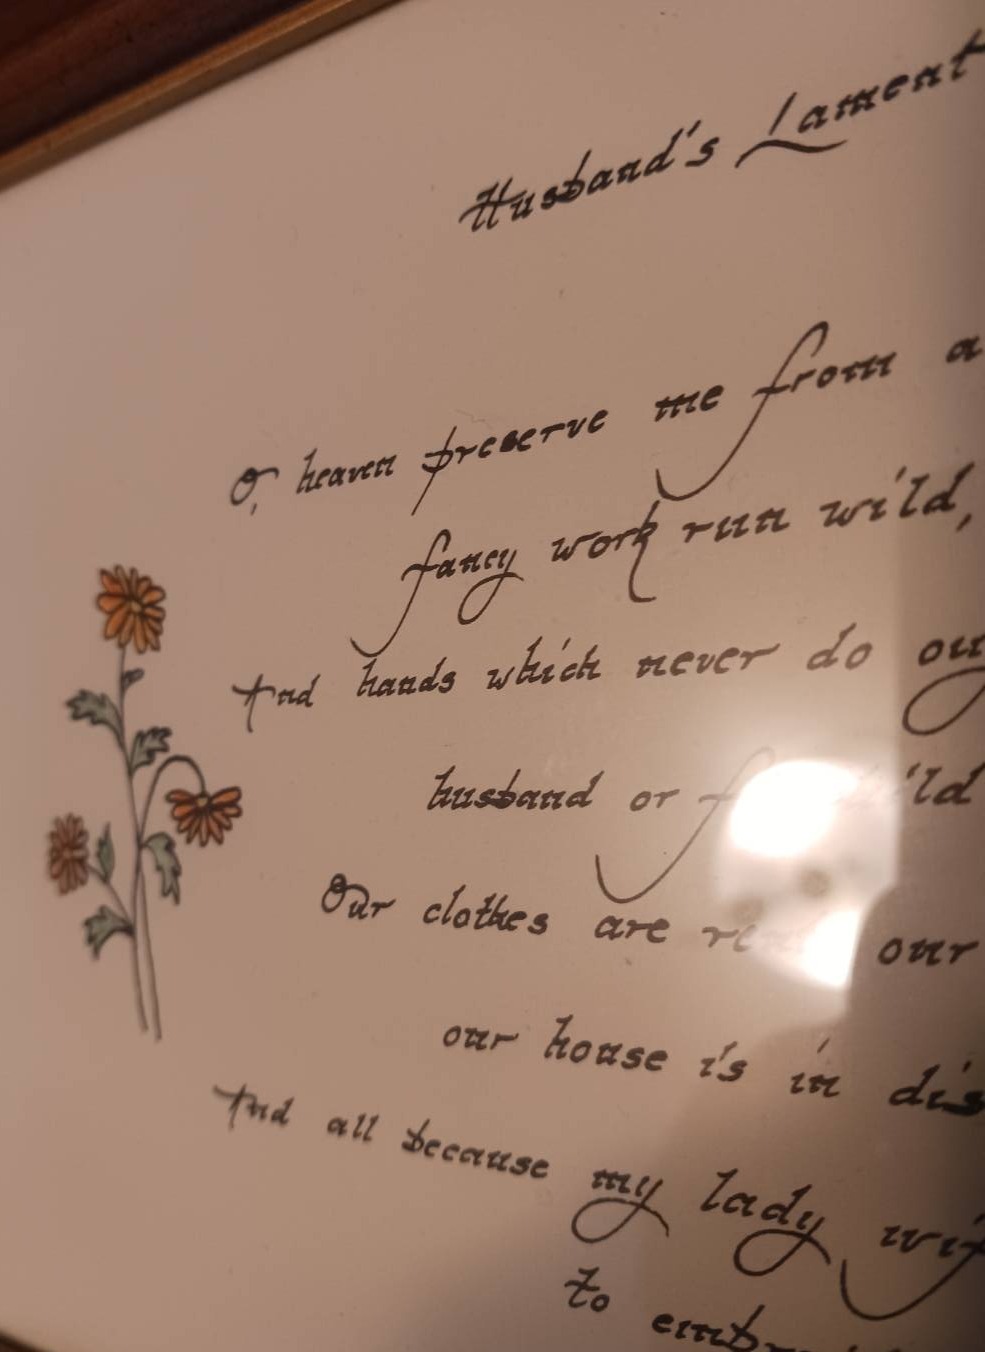 Husband's Lament
O, heaven preserve me from a
fancy work run wild,
And hands which never do
husband or
Our clothes are our
our house is in
And all because my lady
to